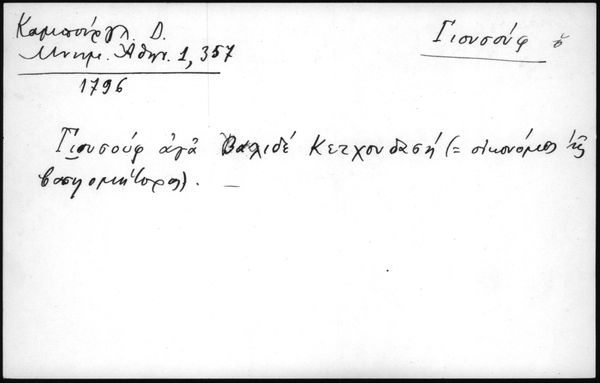 Καμπούργλ. Δ.
Μνημ. Ἀθην. 1, 357
1796
Γιουσούφ ὁ
Γιουσούφ ἀγᾶ Βαλιδέ Κετχουδασή (= οἰκονόμος τῆς
βασιλομήτορος). —